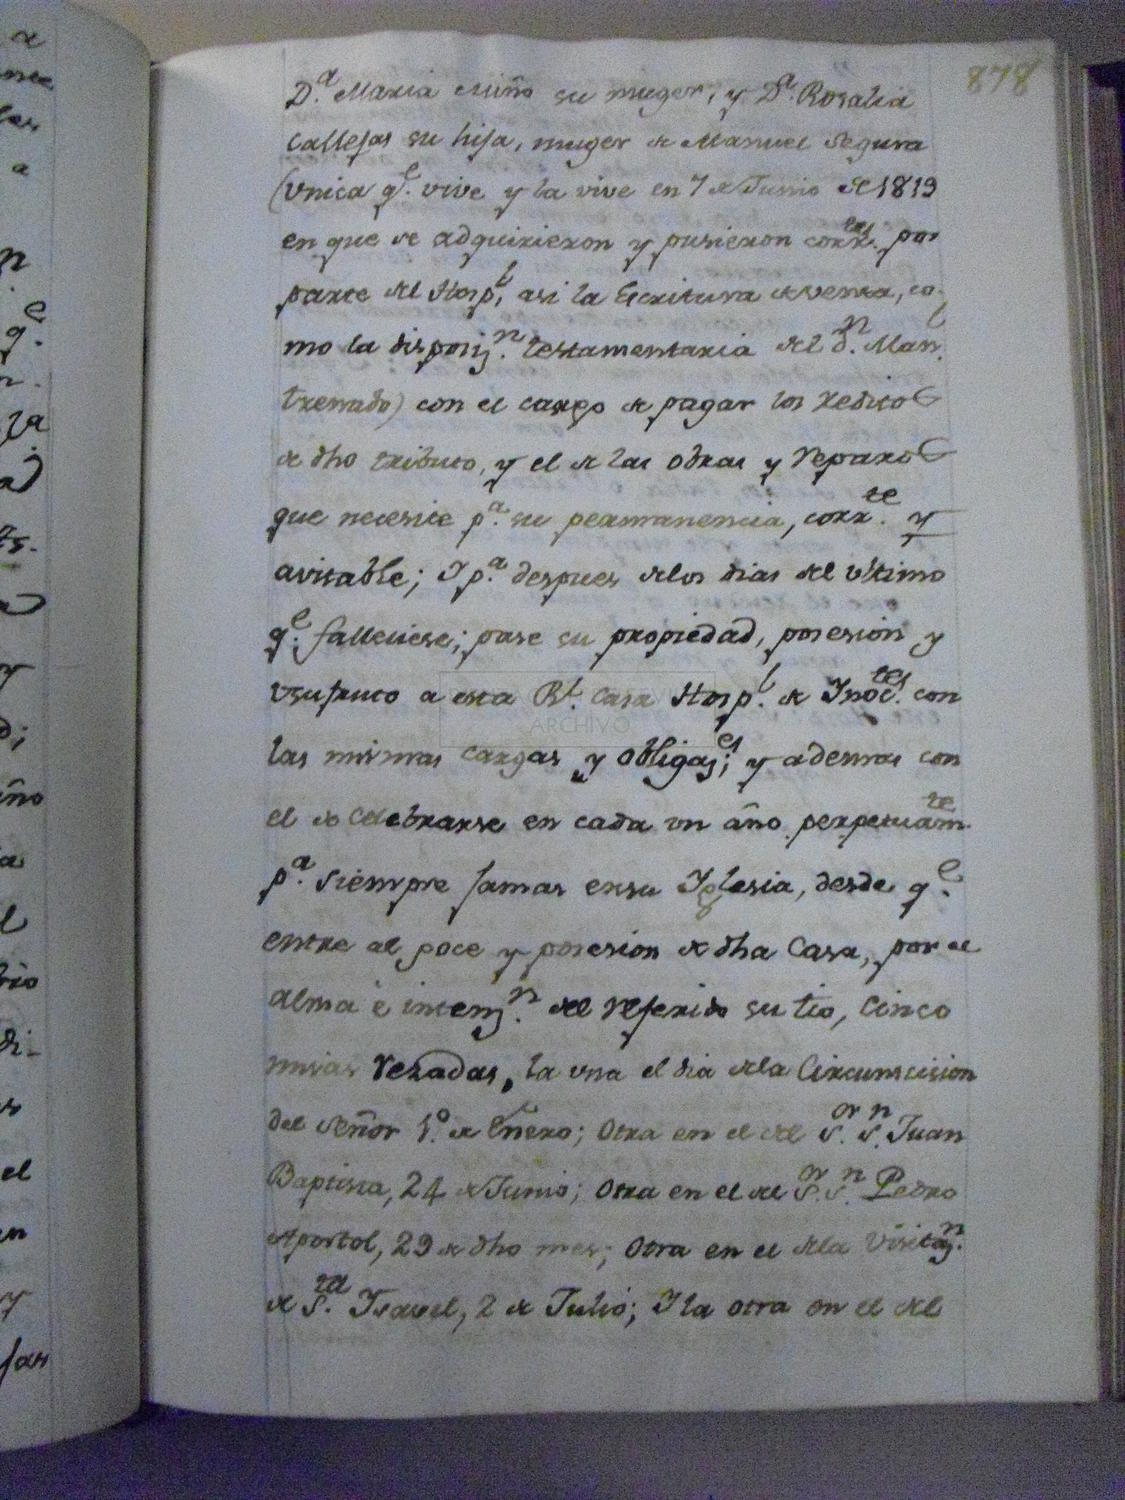 878
D.ª Maria Miño su muger, y D.ª Rosalia
Callejas su hija, muger de Manuel Segura
(Vnica q.e vive y la vive en 7 de Junio de 1819
en que se adquirieron y pusieron corr.tes por
parte del Hosp.l, asi la Escritura de venta, co-
mo la disposiz.n testamentaria del d.n Man.l
trenado) con el cargo de pagar los reditos
de dho tributo, y el de las obras y reparos
que necesite p.a su permanencia, corr.te y
avitable; Y p.a despues delos dias del vltimo
q.e falleciese; pase su propiedad, posesion y
vsufruto a esta R.l Casa Hosp.l de Ynoc.tes con
las mismas cargas y obligaz.es; y ademas con
el de celebrarse en cada vn año perpetuam.te
p.a siempre jamas ensu Yglesia, desde q.e
entre al goce y posesion de dha Casa, por el
alma è intenz.n del referido su tio, Cinco
misas rezadas, la vna el dia dela Circumcision
del Señor 1.º de Enero; Otra en el del S.or S.n Juan
Baptista, 24 de Junio; Otra en el del S.or S.n Pedro
Apostol, 29 de dho mes; Otra en el dela Visitaz.n
de S.ta Ysavel, 2 de Julio; Y la otra en el del
ARCHIVO